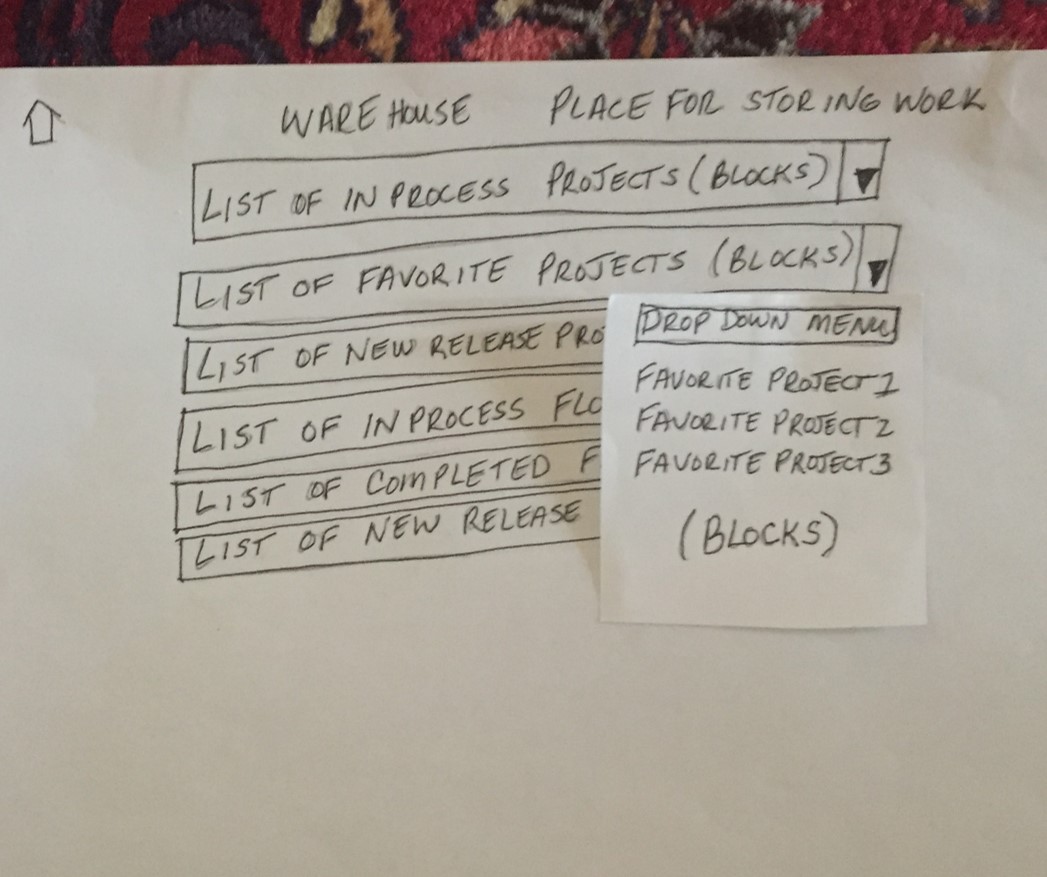 WAREHOUSE PLACE FOR STORING WORK
LIST OF IN PROCESS PROJECTS (BLOCKS)
LIST OF FAVORITE PROJECTS (BLOCKS)
LIST OF NEW RELEASE PRO
LIST OF IN PROCESS FLO
LIST OF COMPLETED F
LIST OF NEW RELEASE
DROP DOWN MENU
FAVORITE PROJECT 1
FAVORITE PROJECT 2
FAVORITE PROJECT 3
(BLOCKS)